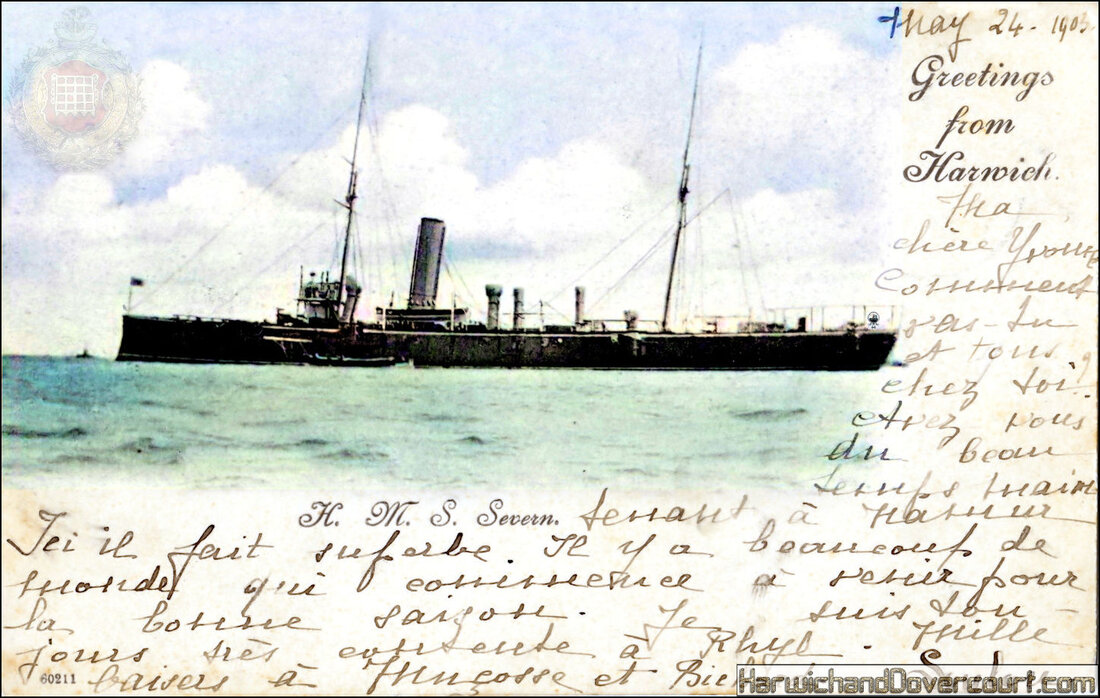 May 24 - 1903
Greetings
from
Harwich.
Ma
chère Yvonne
Comment
vas-tu
et tous
chez toi?
Avez vous
du beau
temps main
H. M. S. Severn.
tenant à Namur
Ici il fait superbe. Il y a beaucoup de
monde qui commence à venir pour
la bonne saison. Je suis tou-
jours très contente à Rhyl. Mille
baisers à et
60211
HarwichandDovercourt.com